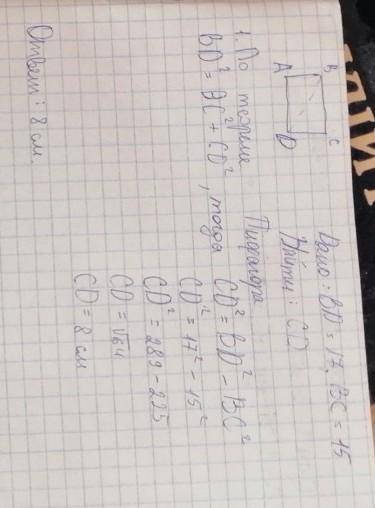 B C
A D
Дано: BD = 17, BC = 15
Найти: CD
1. По теореме Пифагора
BD² = BC² + CD², тогда CD² = BD² - BC²
CD² = 17² - 15²
CD² = 289 - 225
CD = √64
CD = 8 см
Ответ: 8 см.